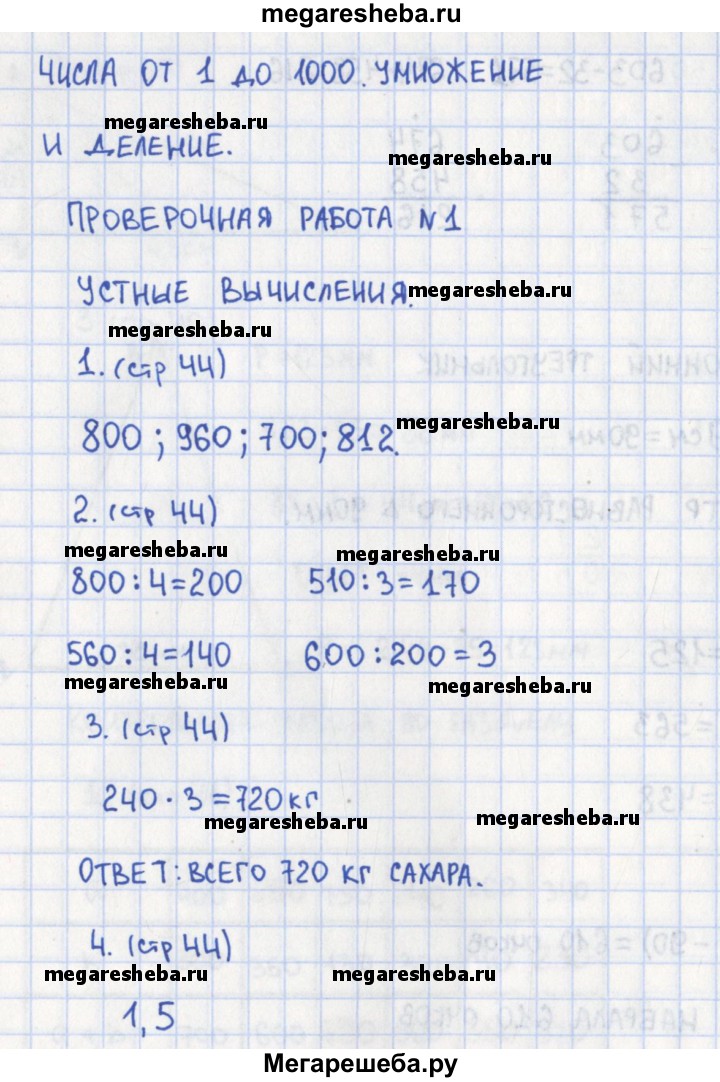 megaresheba.ru
ЧИСЛА ОТ 1 ДО 1000. УМНОЖЕНИЕ
megaresheba.ru
И ДЕЛЕНИЕ.
megaresheba.ru
ПРОВЕРОЧНАЯ РАБОТА №1
УСТНЫЕ ВЫЧИСЛЕНИЯ.
megaresheba.ru
megaresheba.ru
1. (стр 44)
800 ; 960 ; 700 ; 812.
megaresheba.ru
2. (стр 44)
megaresheba.ru megaresheba.ru
800 : 4 = 200 510 : 3 = 170
560 : 4 = 140 600 : 200 = 3
megaresheba.ru megaresheba.ru
3. (стр 44)
240 · 3 = 720 кг
megaresheba.ru megaresheba.ru
ОТВЕТ: ВСЕГО 720 КГ САХАРА.
4. (стр 44)
megaresheba.ru megaresheba.ru
1, 5
Мегарешеба.ру